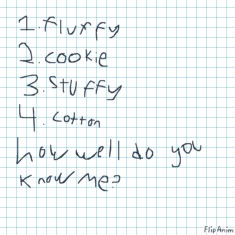 1. fluffy
2. cookie
3. stuffy
4. cotton
how well do you
know me?
FlipAnim